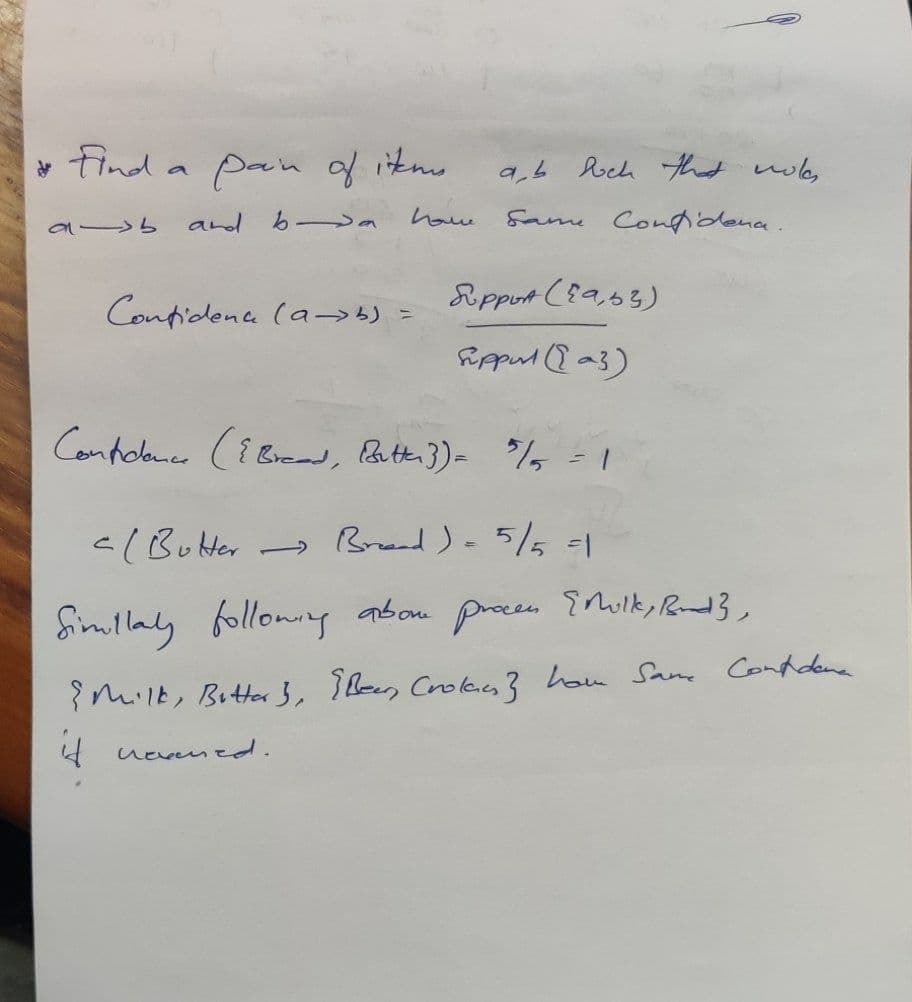 * Find a pair of items a,b such that rules
a → b and b → a have same Confidence.
Confidence (a → b) = Support ({a,b})
Support ({a})
Confidence ({Bread, Butter}) = 5/5 = 1
c (Butter → Bread) = 5/5 = 1
Simillaly following above process {Milk, Bread},
{Milk, Butter}, {Beer, Cookies} have Same Confidence
if reversed.